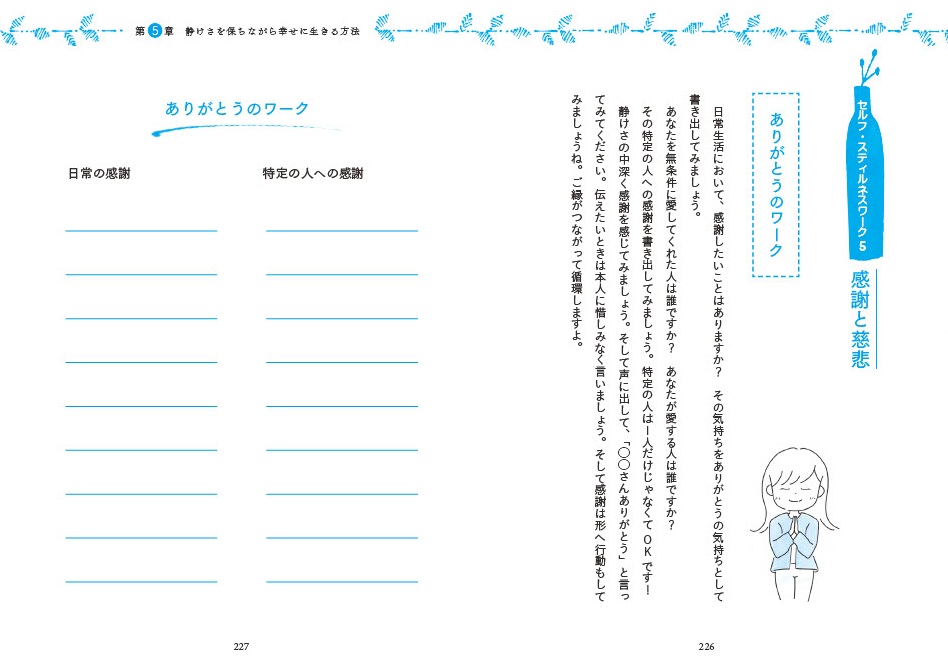 第5章 静けさを保ちながら幸せに生きる方法
セルフ・スティルネスワーク5
感謝と慈悲
ありがとうのワーク
日常生活において、感謝したいことはありますか？　その気持ちをありがとうの気持ちとして
書き出してみましょう。
あなたを無条件に愛してくれた人は誰ですか？　あなたが愛する人は誰ですか？
その特定の人への感謝を書き出してみましょう。特定の人は一人だけじゃなくてOKです！
静けさの中深く感謝を感じてみましょう。そして声に出して、「〇〇さんありがとう」と言っ
てみてください。伝えたいときは本人に惜しみなく言いましょう。そして感謝は形へ行動もして
みましょうね。ご縁がつながって循環しますよ。
226
ありがとうのワーク
日常の感謝
特定の人への感謝
227